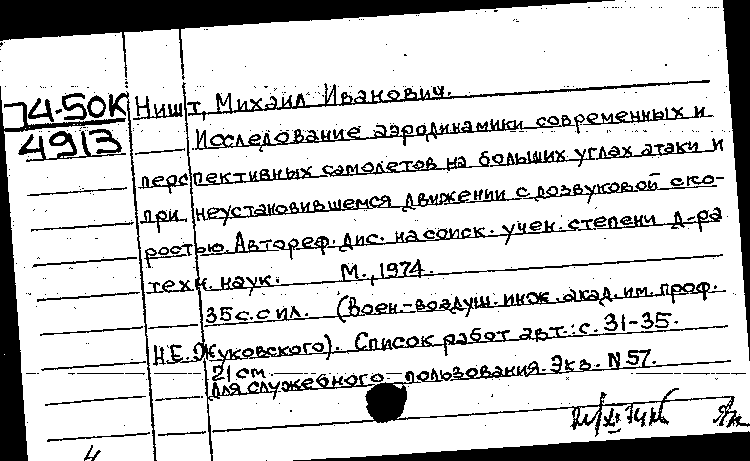 74-50К
4913
Ништ, Михаил Иванович.
Исследование аэродинамики современных и
перспективных самолетов на больших углах атаки и
при неустановившемся движении с дозвуковой ско-
ростью. Автореф. дис. на соиск. учен. степени д-ра
техн. наук. М., 1974.
35 с. с ил. (Воен.-воздуш. инж. акад. им. проф.
Н.Е. Жуковского). Список работ авт.: с. 31-35.
21 см.
Для служебного пользования. Экз. N 57.
4